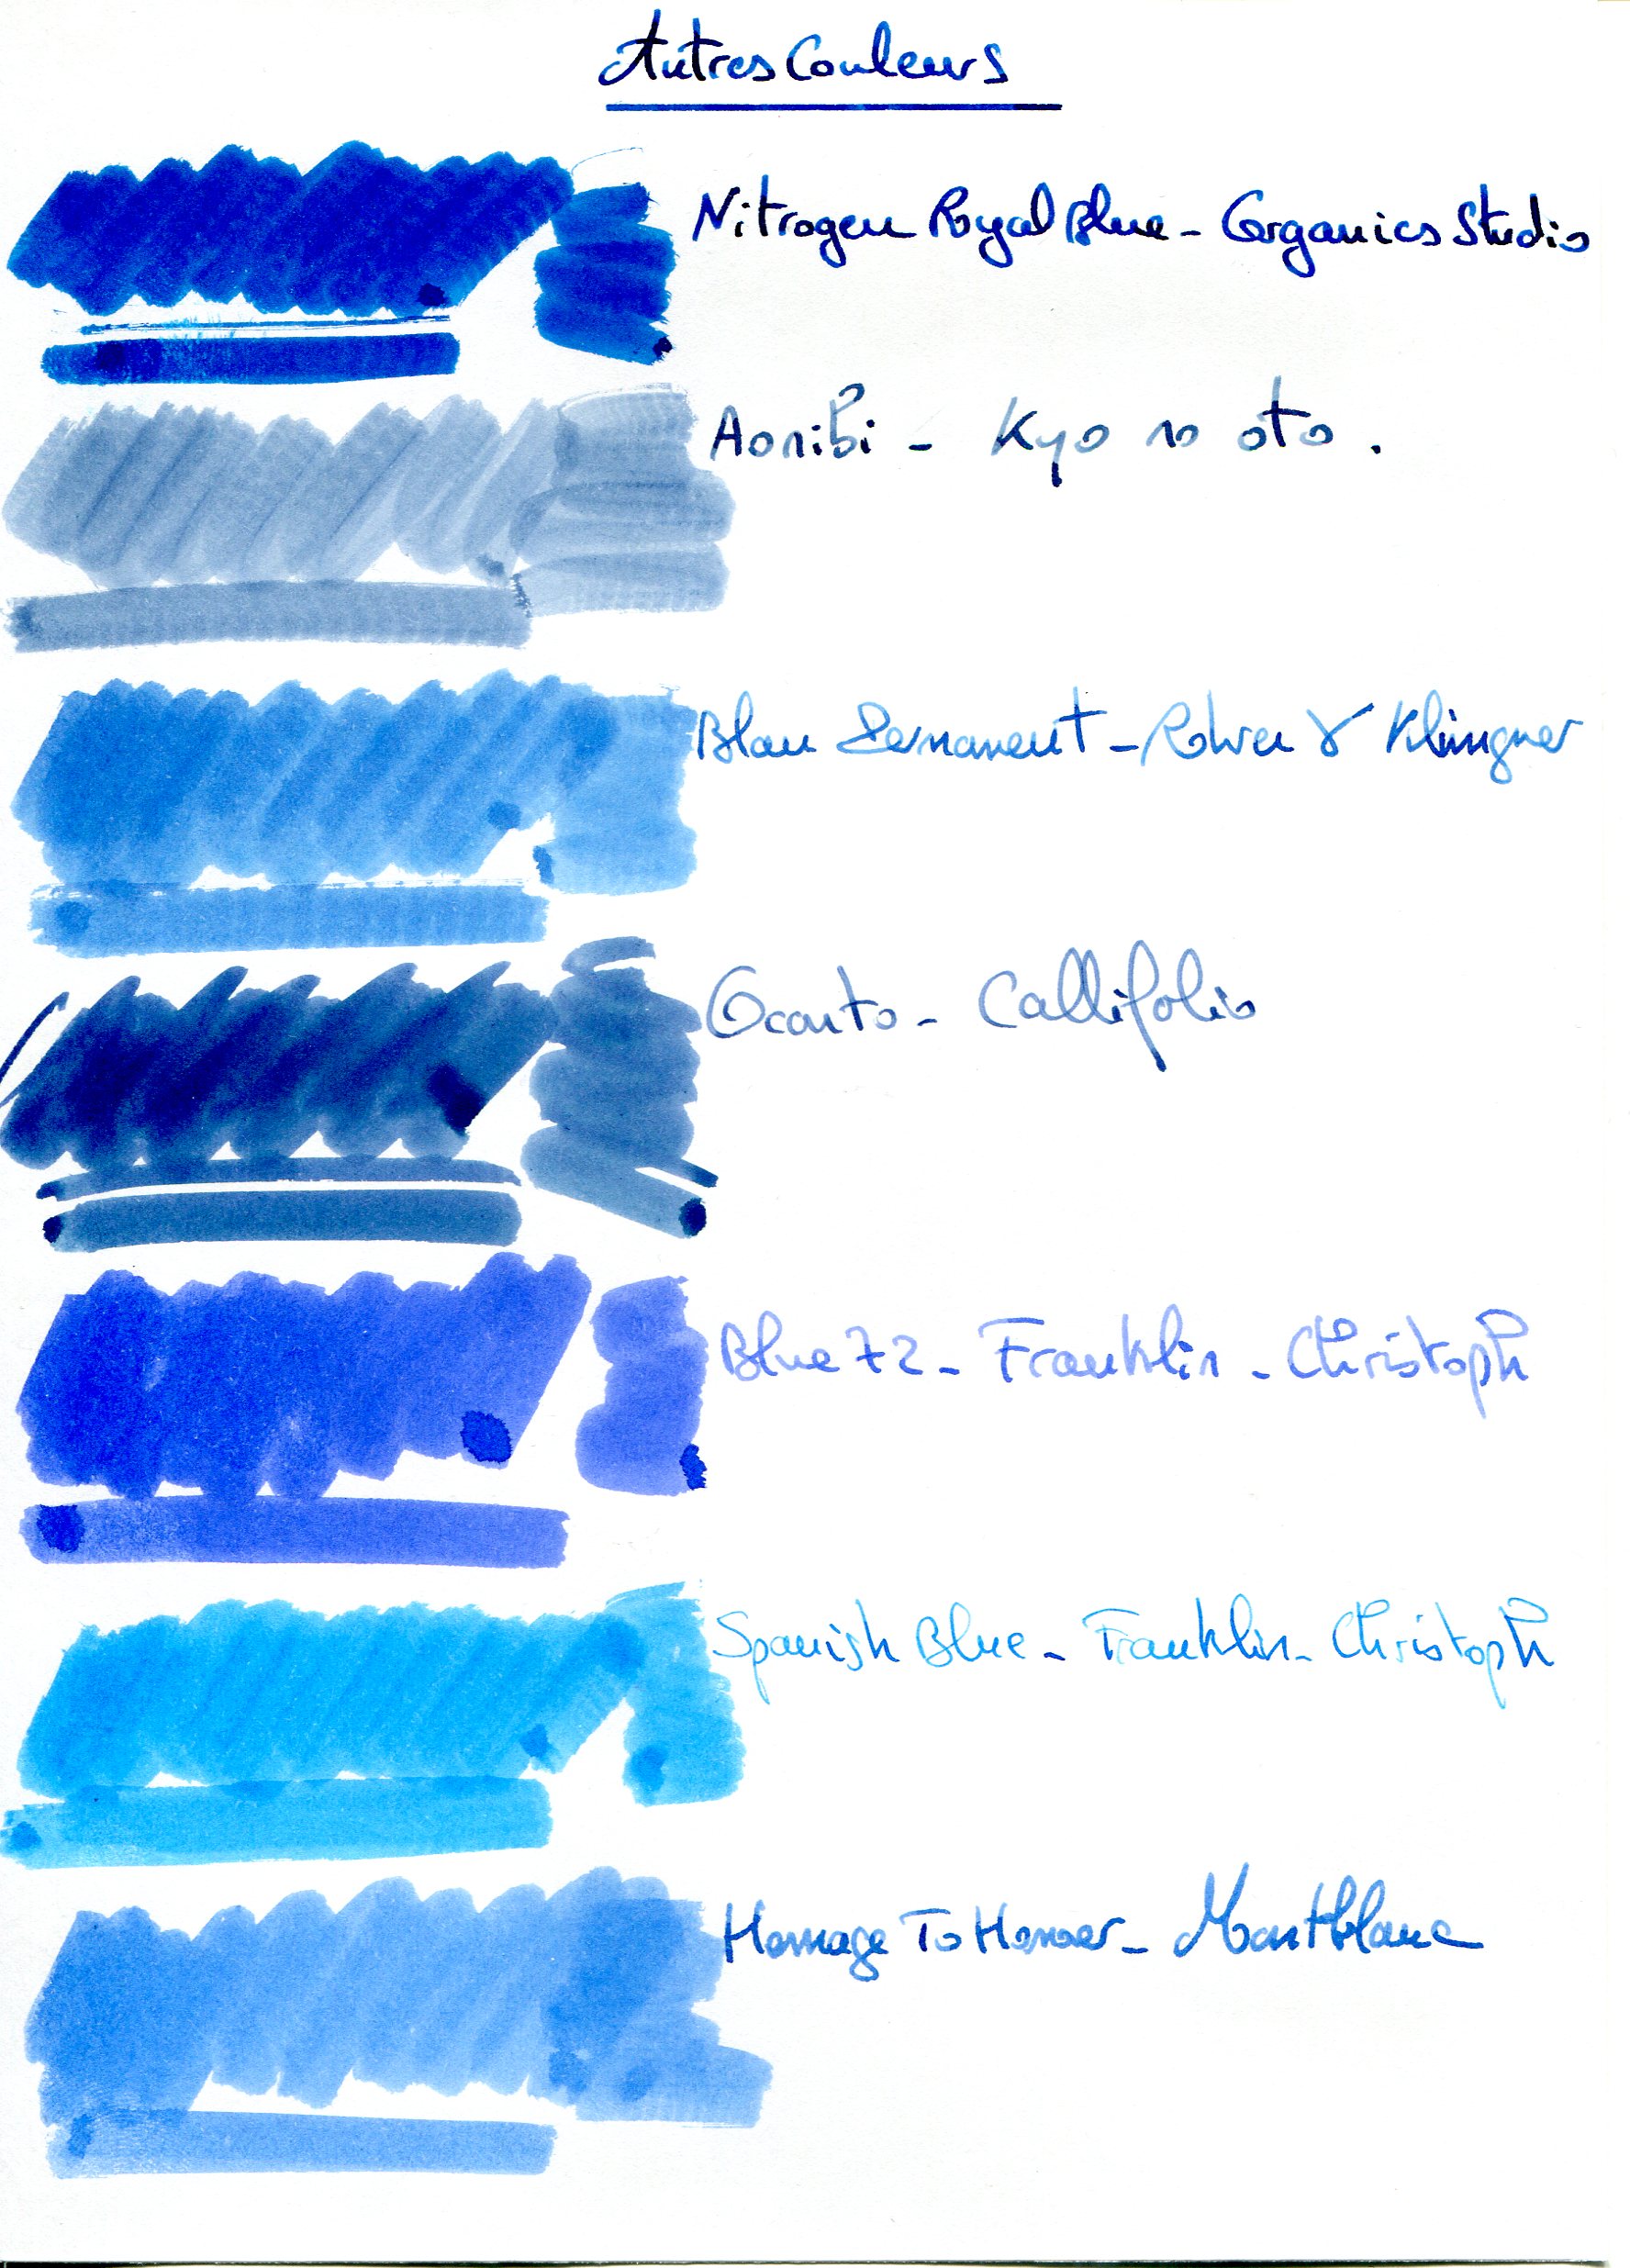 Autres Couleurs
Nitrogen Royal Blue - Organics Studio
Aonibi - Kyo no oto.
Blau Permanent - Rohrer & Klingner
Oconto - Callifolio
Blue 72 - Franklin - Christoph
Spanish Blue - Franklin - Christoph
Homage To Homer - Montblanc